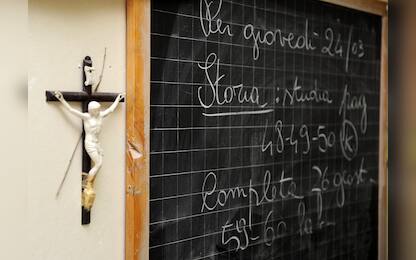 Per giovedì 24/03
Storia : studia pag
48-49-50 K
Completa
59-60